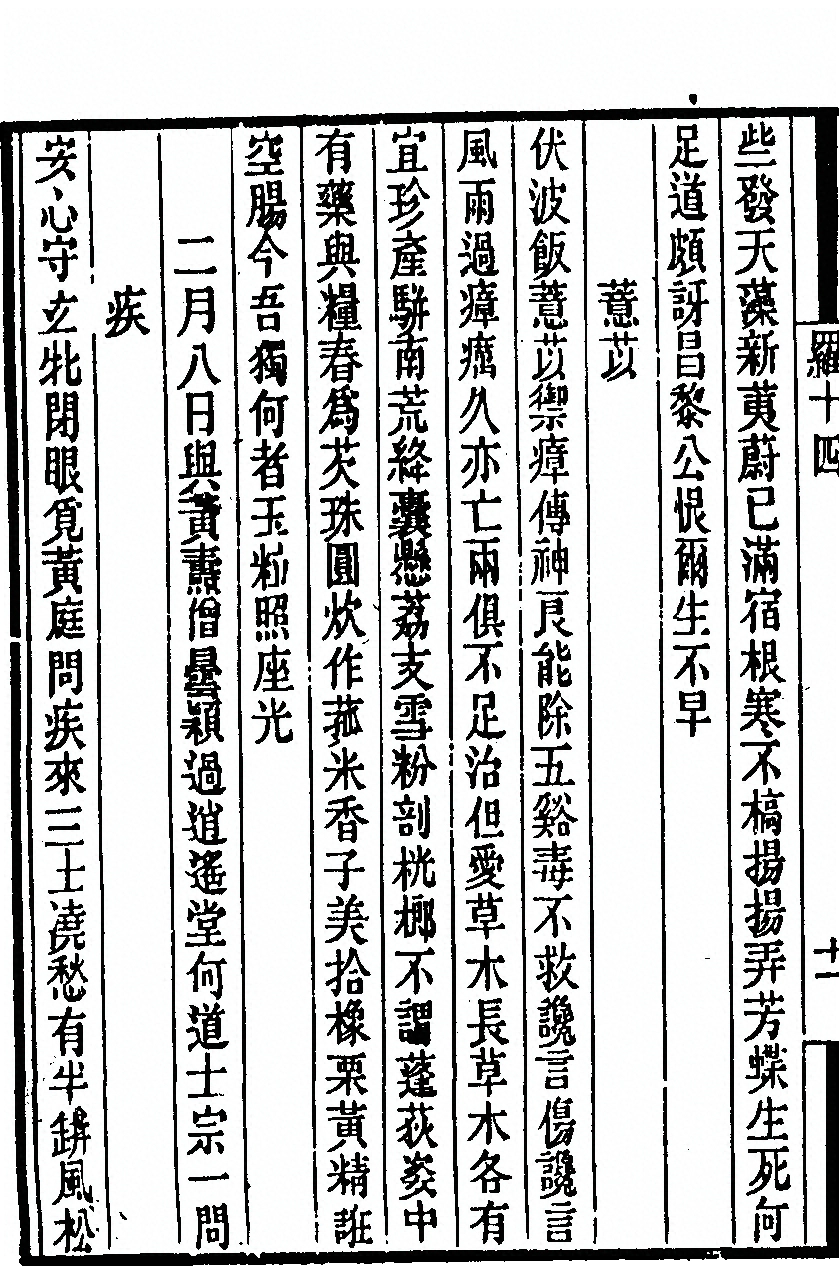 羅十四
十一
些發天藻新荑蔚已滿宿根寒不槁揚揚弄芳蝶生死何
足道頗訝昌黎公恨爾生不早
薏苡
伏波飯薏苡禦瘴傳神良能除五谿毒不救讒言傷讒言
風雨過瘴癘久亦亡兩俱不足治但愛草木長草木各有
宜珍產駢南荒絳囊懸荔支雪粉剖桄榔不謂蓬荻姿中
有藥與糧舂爲芡珠圓炊作菰米香子美拾橡栗黃精誑
空腸今吾獨何者玉粒照座光
二月八日與黃燾僧曇穎過逍遙堂何道士宗一問
疾
安心守玄牝閉眼覓黃庭問疾來三士澆愁有半缾風松